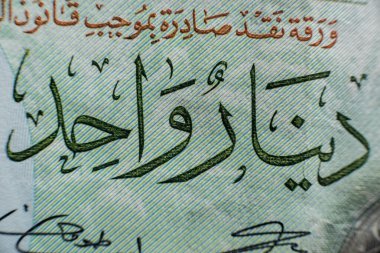 ورقة نقد صادرة بموجب قانون
دينارٌ واحد